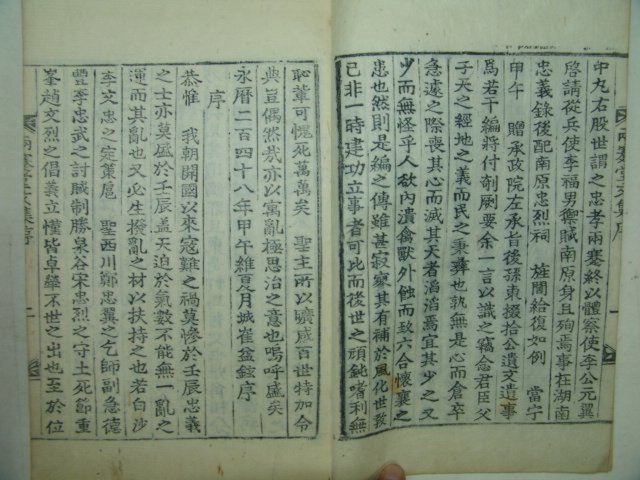 中丸右股世謂之忠孝兩蹇終以體察使李公元翼
啓請從兵使李福男禦賊南原身且殉焉事在湖南
忠義錄後配南原忠烈祠 旌閭給復如例 當宁
甲午 贈承政院左承旨後孫東掇拾公遺文遺事
爲若干編將付剞劂要余一言以識之竊念君臣父
子天之經地之義而民之秉彛也孰無是心而倉卒
急遽之際喪其心而滅其天者滔滔焉宜其少之又
少而無怪乎人欲內潰禽獸外蝕而致六合懷襄之
患也然則是編之傳雖甚寂寥其有補於風化世敎
已非一時建功立事者可此而後世之頑鈍嗜利無
恥輩可愧死萬萬矣 聖主所以曠感百世特加令
典豈偶然哉亦以寓亂極思治之意也嗚呼盛矣
永曆二百四十八年甲午維夏月城崔益鉉序
序
恭惟 我朝開國以來寇難之禍莫慘於壬辰忠義
之士亦莫盛於壬辰盖天迫於氣數不能無一亂之
運而其亂也又必生撥亂之材以扶持之也若白沙
李文忠之定策扈 聖西川鄭忠翼之乞師副急德
豐李忠武之討賊制勝泉谷宋忠烈之守土死節重
峯趙文烈之倡義立慬皆卓犖不世之出也至於位
兩蹇堂文集序